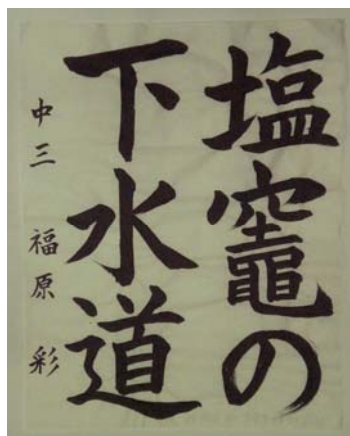 塩竈の
下水道
中三 福原 彩